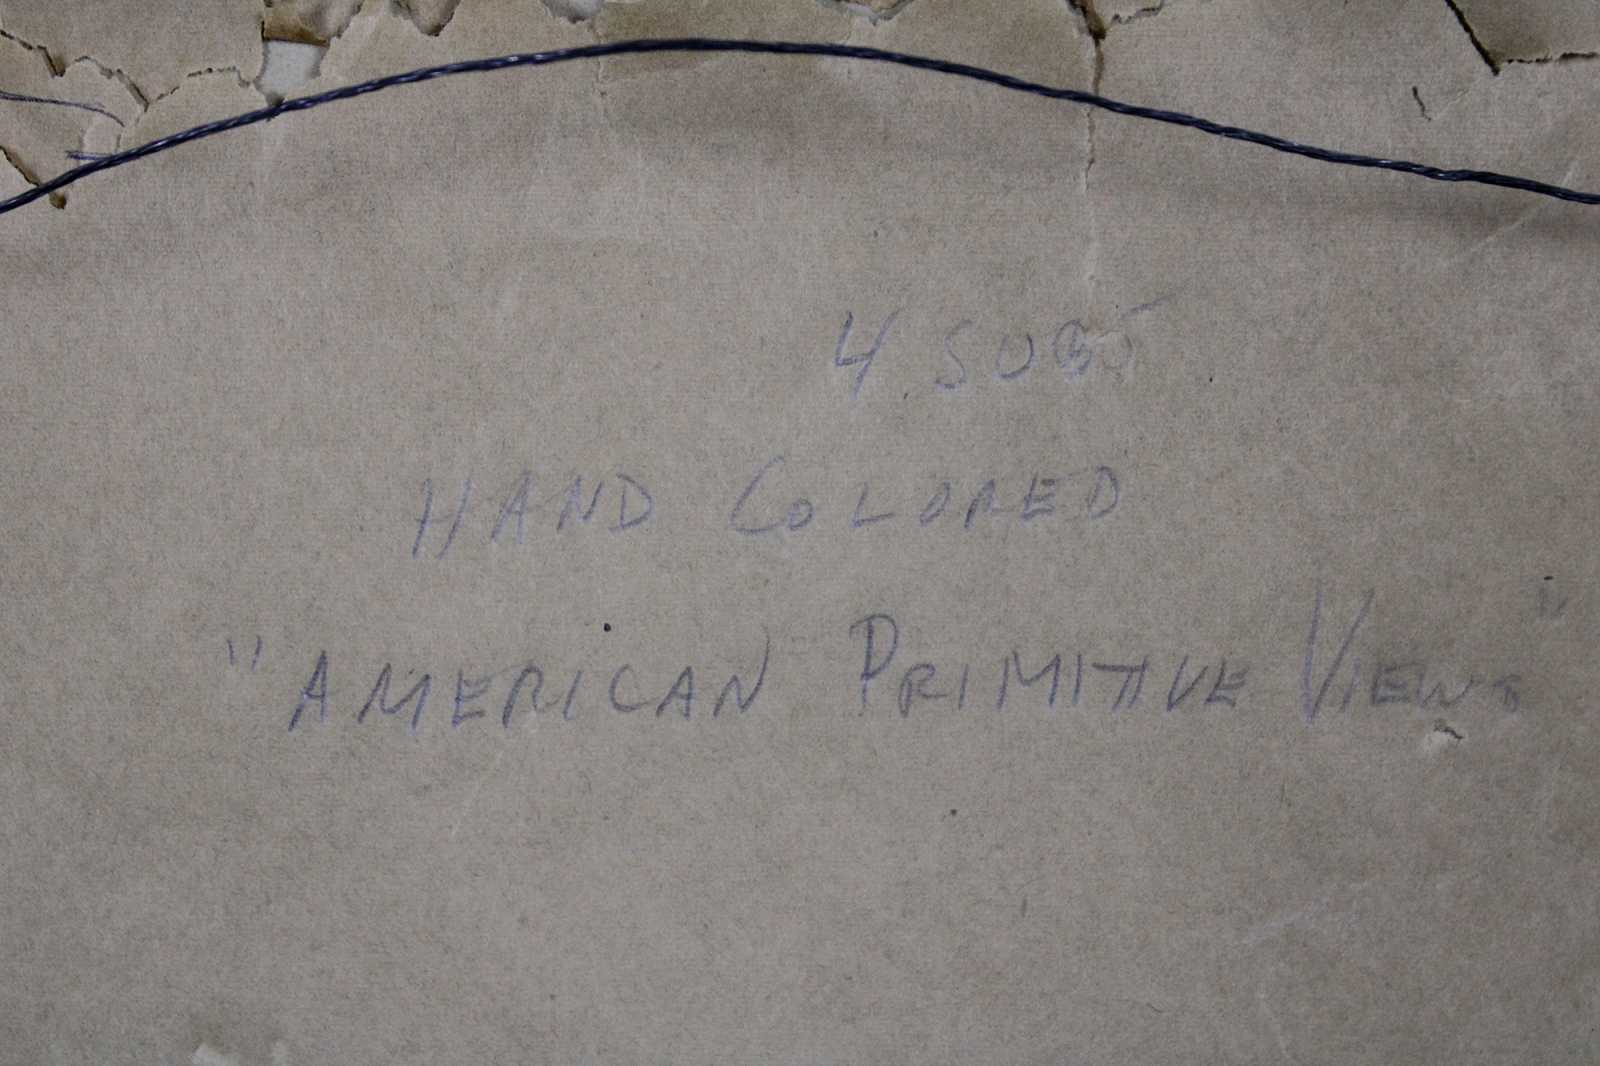 4 SUBJ
HAND COLORED
"AMERICAN PRIMITIVE VIEWS"